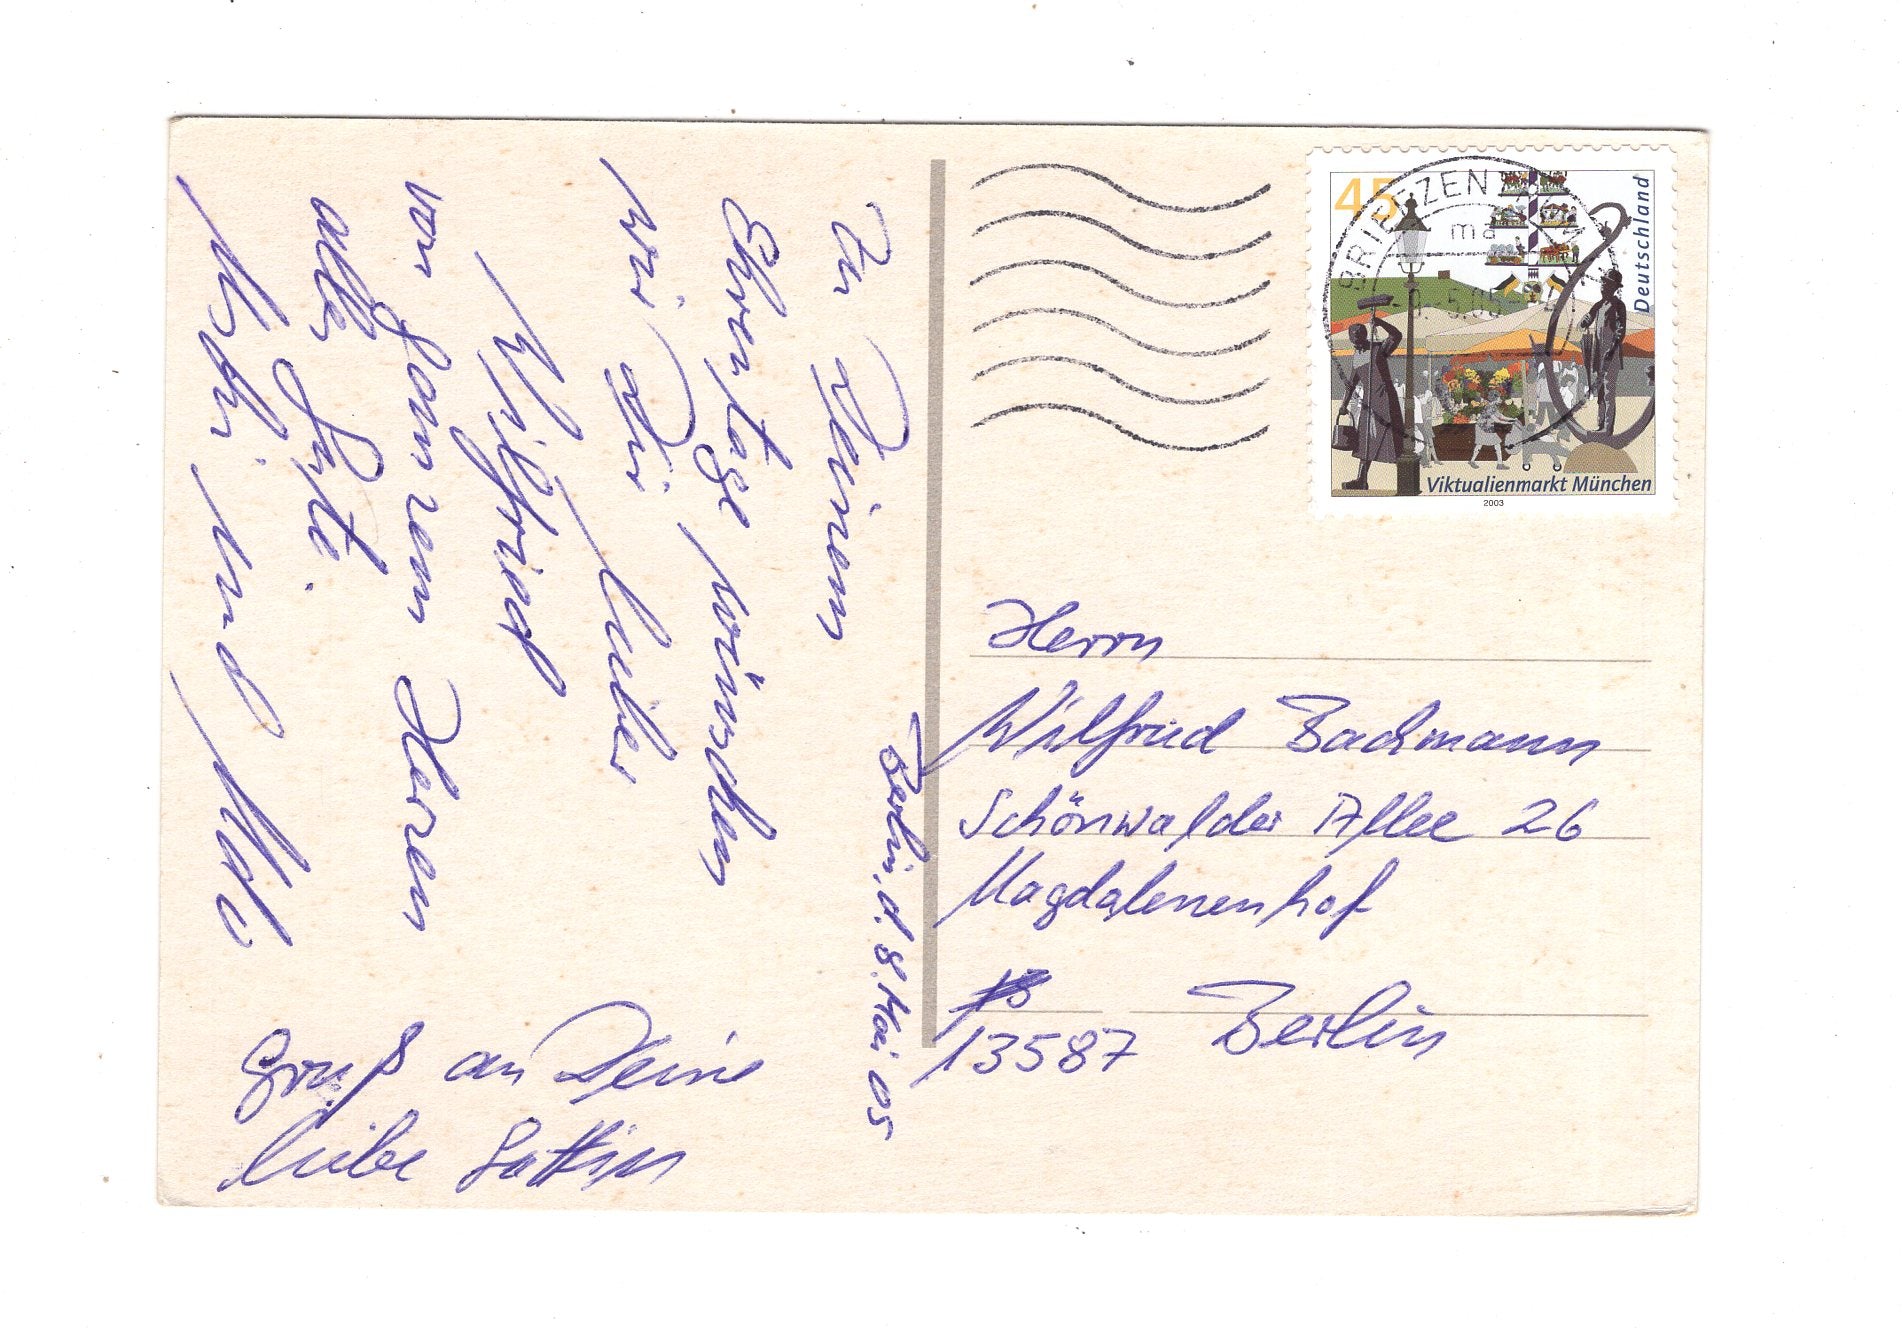 Berlin, d. 8. Mai 05
Zu Deinem
Ehrentage wünschen
wir Dir lieber
Wilfried
von ganzem Herzen
alles Gute.
und
Gruß an Deine
liebe Gattin
45
Deutschland
BRIEFZENTRUM
ma
Viktualienmarkt München
2003
Herrn
Wilfried Bachmann
Schönwalder Allee 26
Magdalenenhof
13587 Berlin